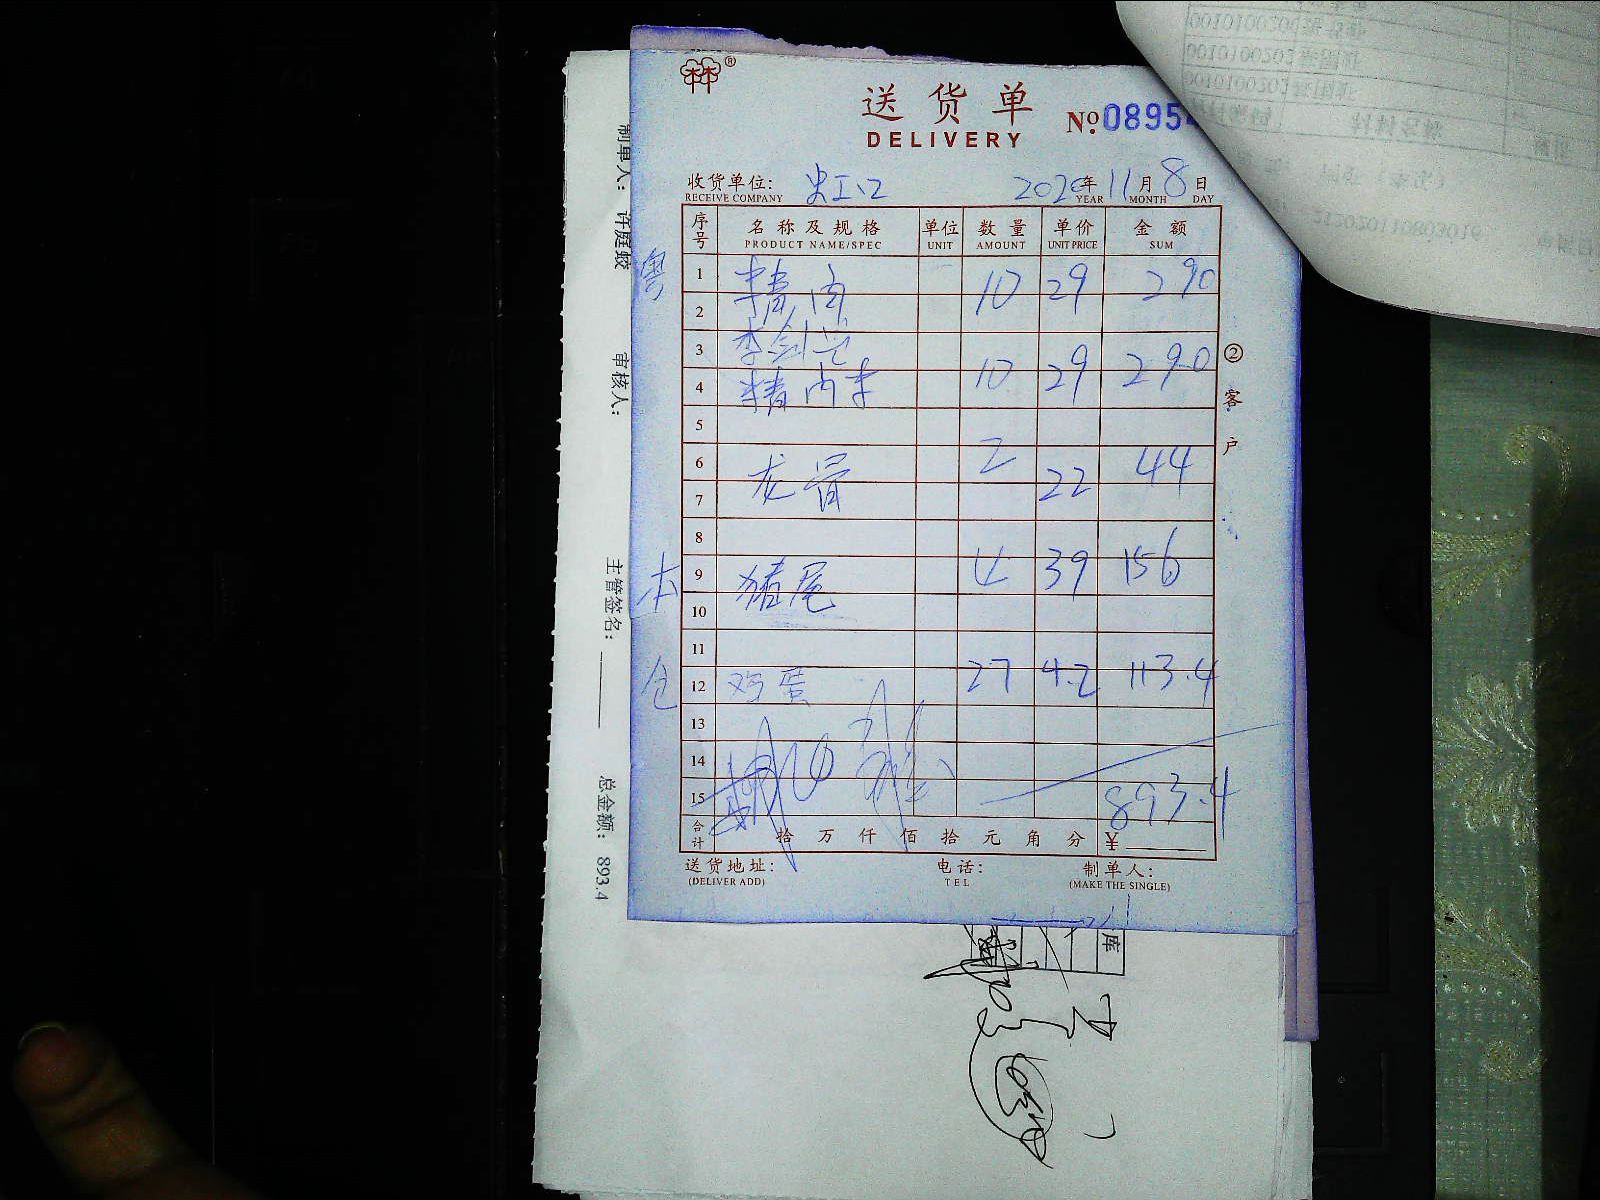 送货单
DELIVERY
No. 0895
收货单位: 虹口 2020年11月8日
RECEIVE COMPANY YEAR MONTH DAY
序号 名称及规格 单位 数量 单价 金额
PRODUCT NAME/SPEC UNIT AMOUNT UNIT PRICE SUM
粤
1 精肉 10 29 290
2
3 李剑
4 精肉 10 29 290
5
6 龙骨 2 22 44
7
8
9 猪尾 4 39 156
本
10
11
12 鸡蛋 27 4.2 113.4
仓
13
14
15 893.4
合计 拾万仟佰拾元角分 ¥
送货地址: 电话: 制单人:
(DELIVER ADD) TEL (MAKE THE SINGLE)
②客户
制单人: 许庭蛟 审核人: 主管签名: 总金额: 893.4
库